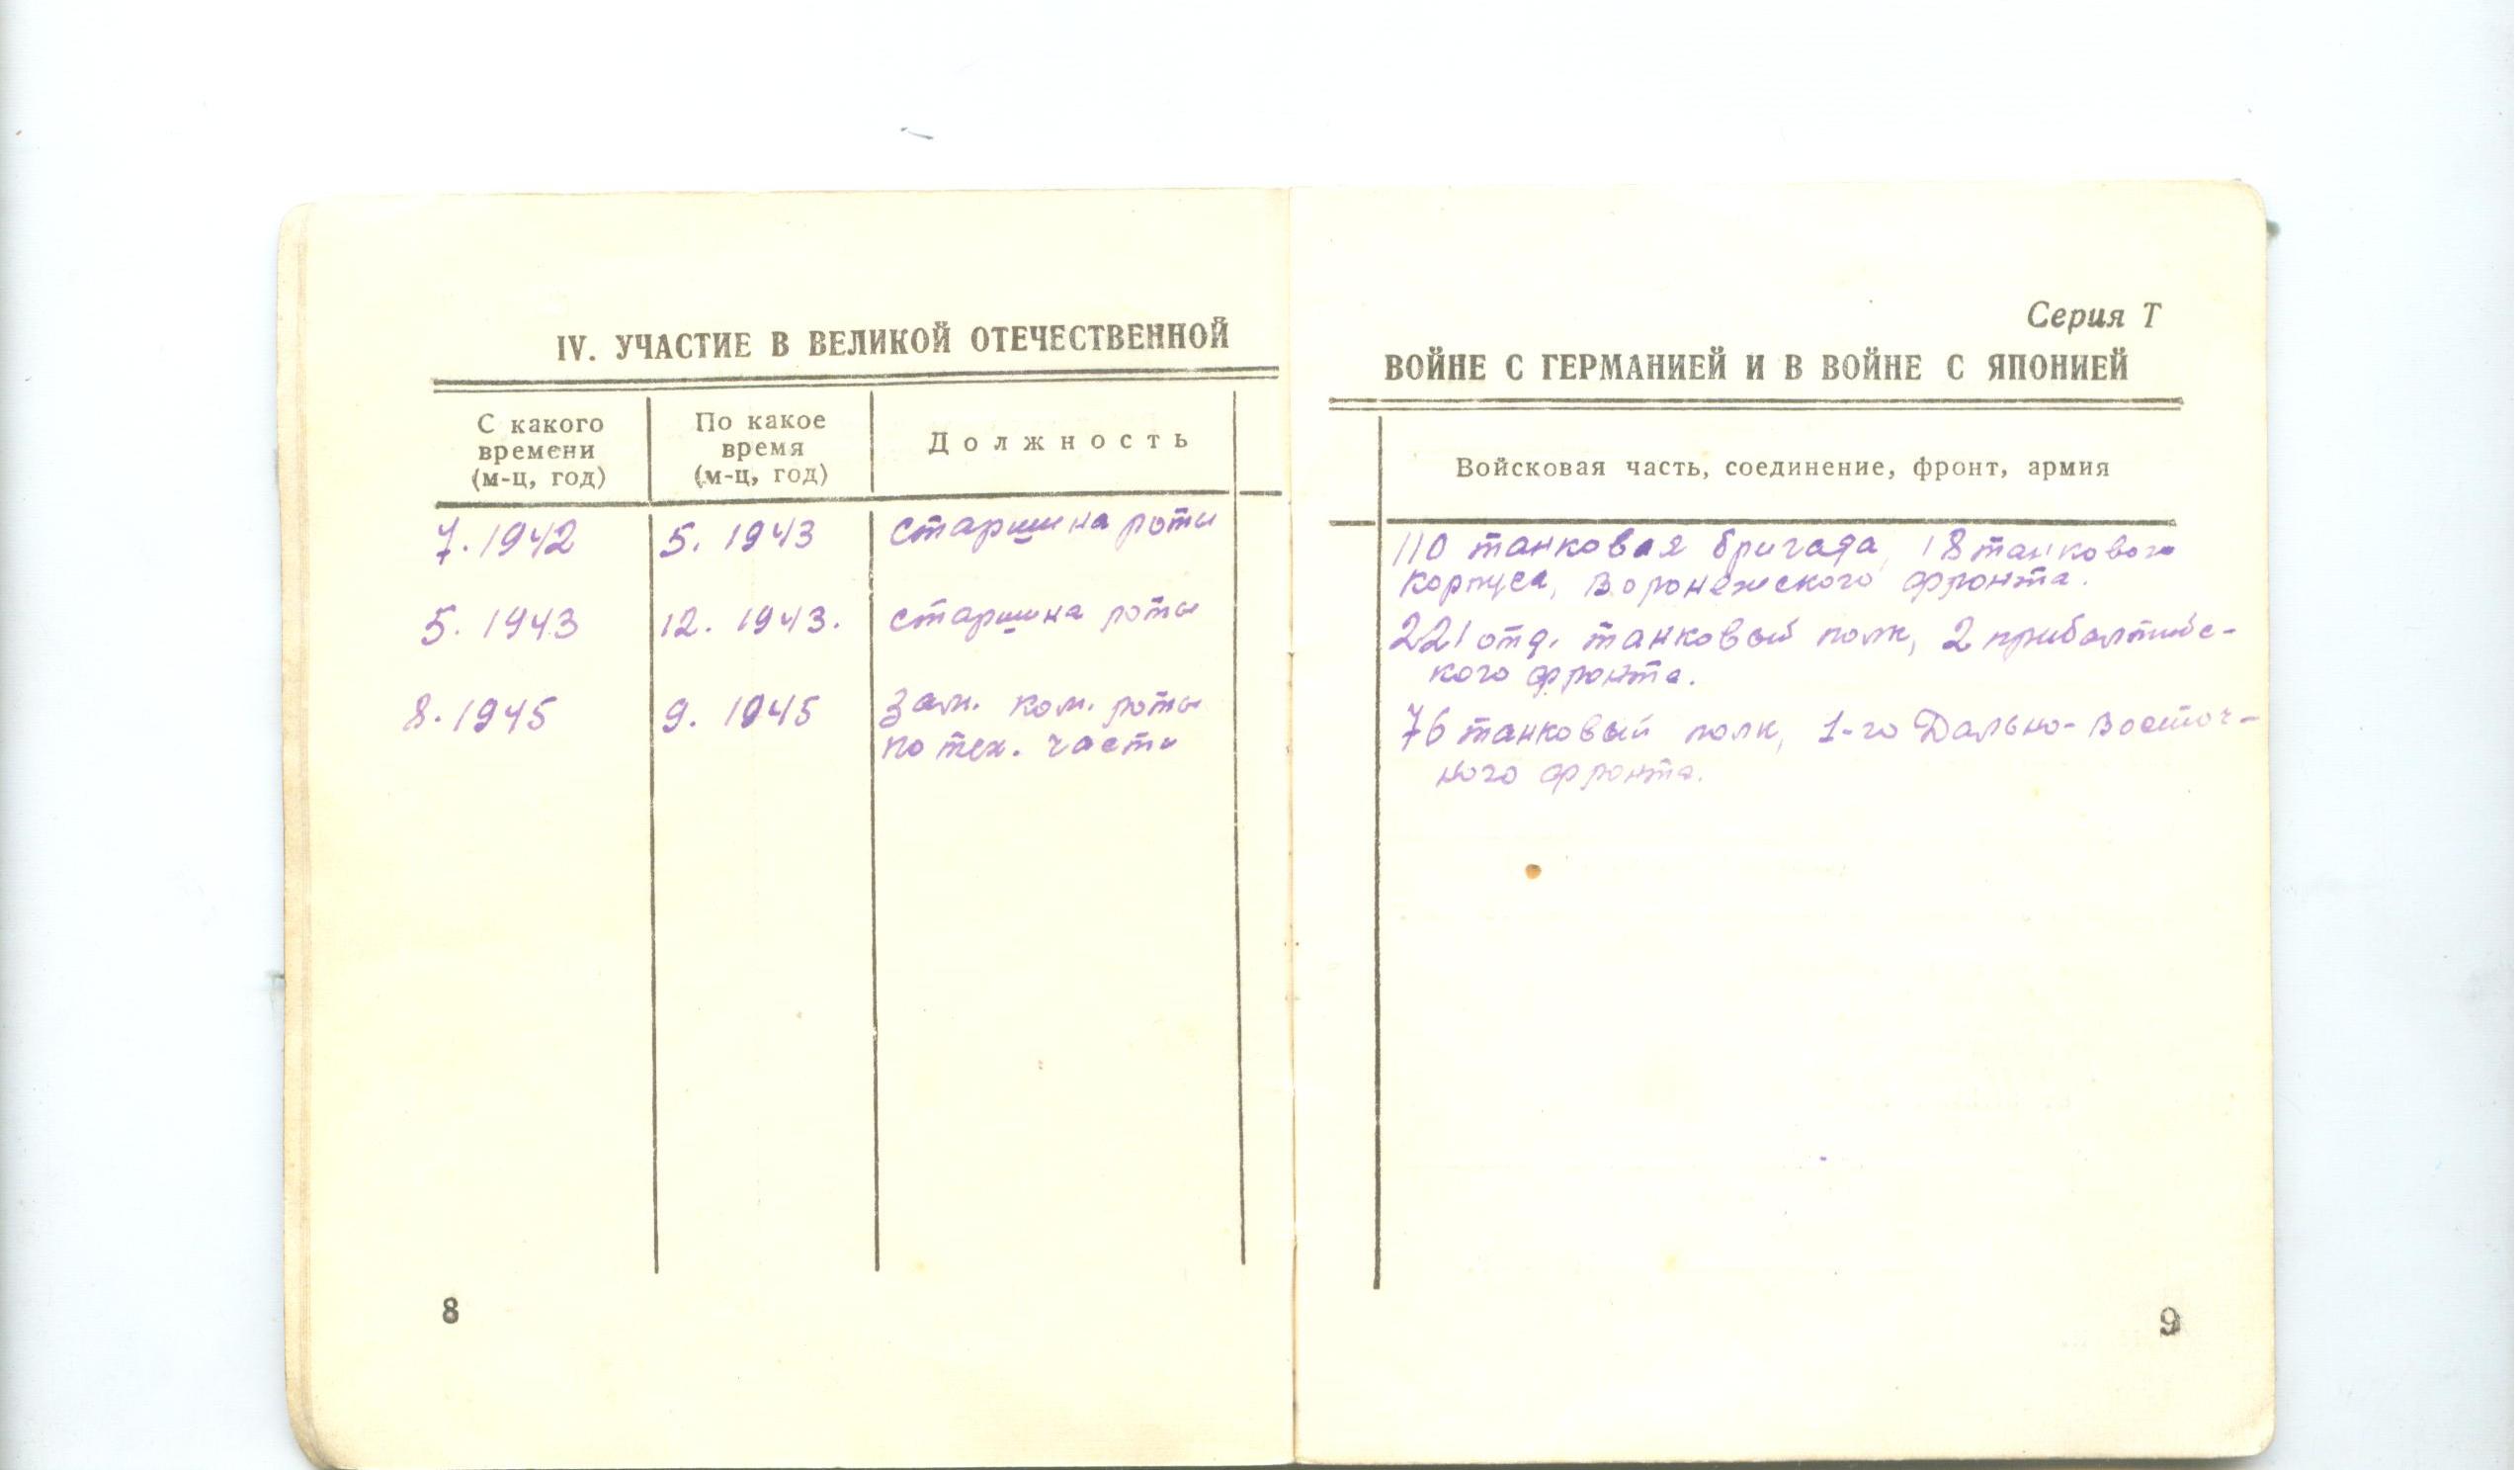 IV. УЧАСТИЕ В ВЕЛИКОЙ ОТЕЧЕСТВЕННОЙ
С какого
времени
(м-ц, год)
По какое
время
(м-ц, год)
Должность
7. 1942
5. 1943
старшина роты
5. 1943
12. 1943.
старшина роты
8. 1945
9. 1945
Зам. ком. роты
по тех. части
8
Серия Т
ВОЙНЕ С ГЕРМАНИЕЙ И В ВОЙНЕ С ЯПОНИЕЙ
Войсковая часть, соединение, фронт, армия
110 танковая бригада, 18 танкового
корпуса, Воронежского фронта.
221 отд. танковый полк, 2 прибалтийс-
кого фронта.
76 танковый полк, 1-го Дально-Восточ-
ного фронта.
9